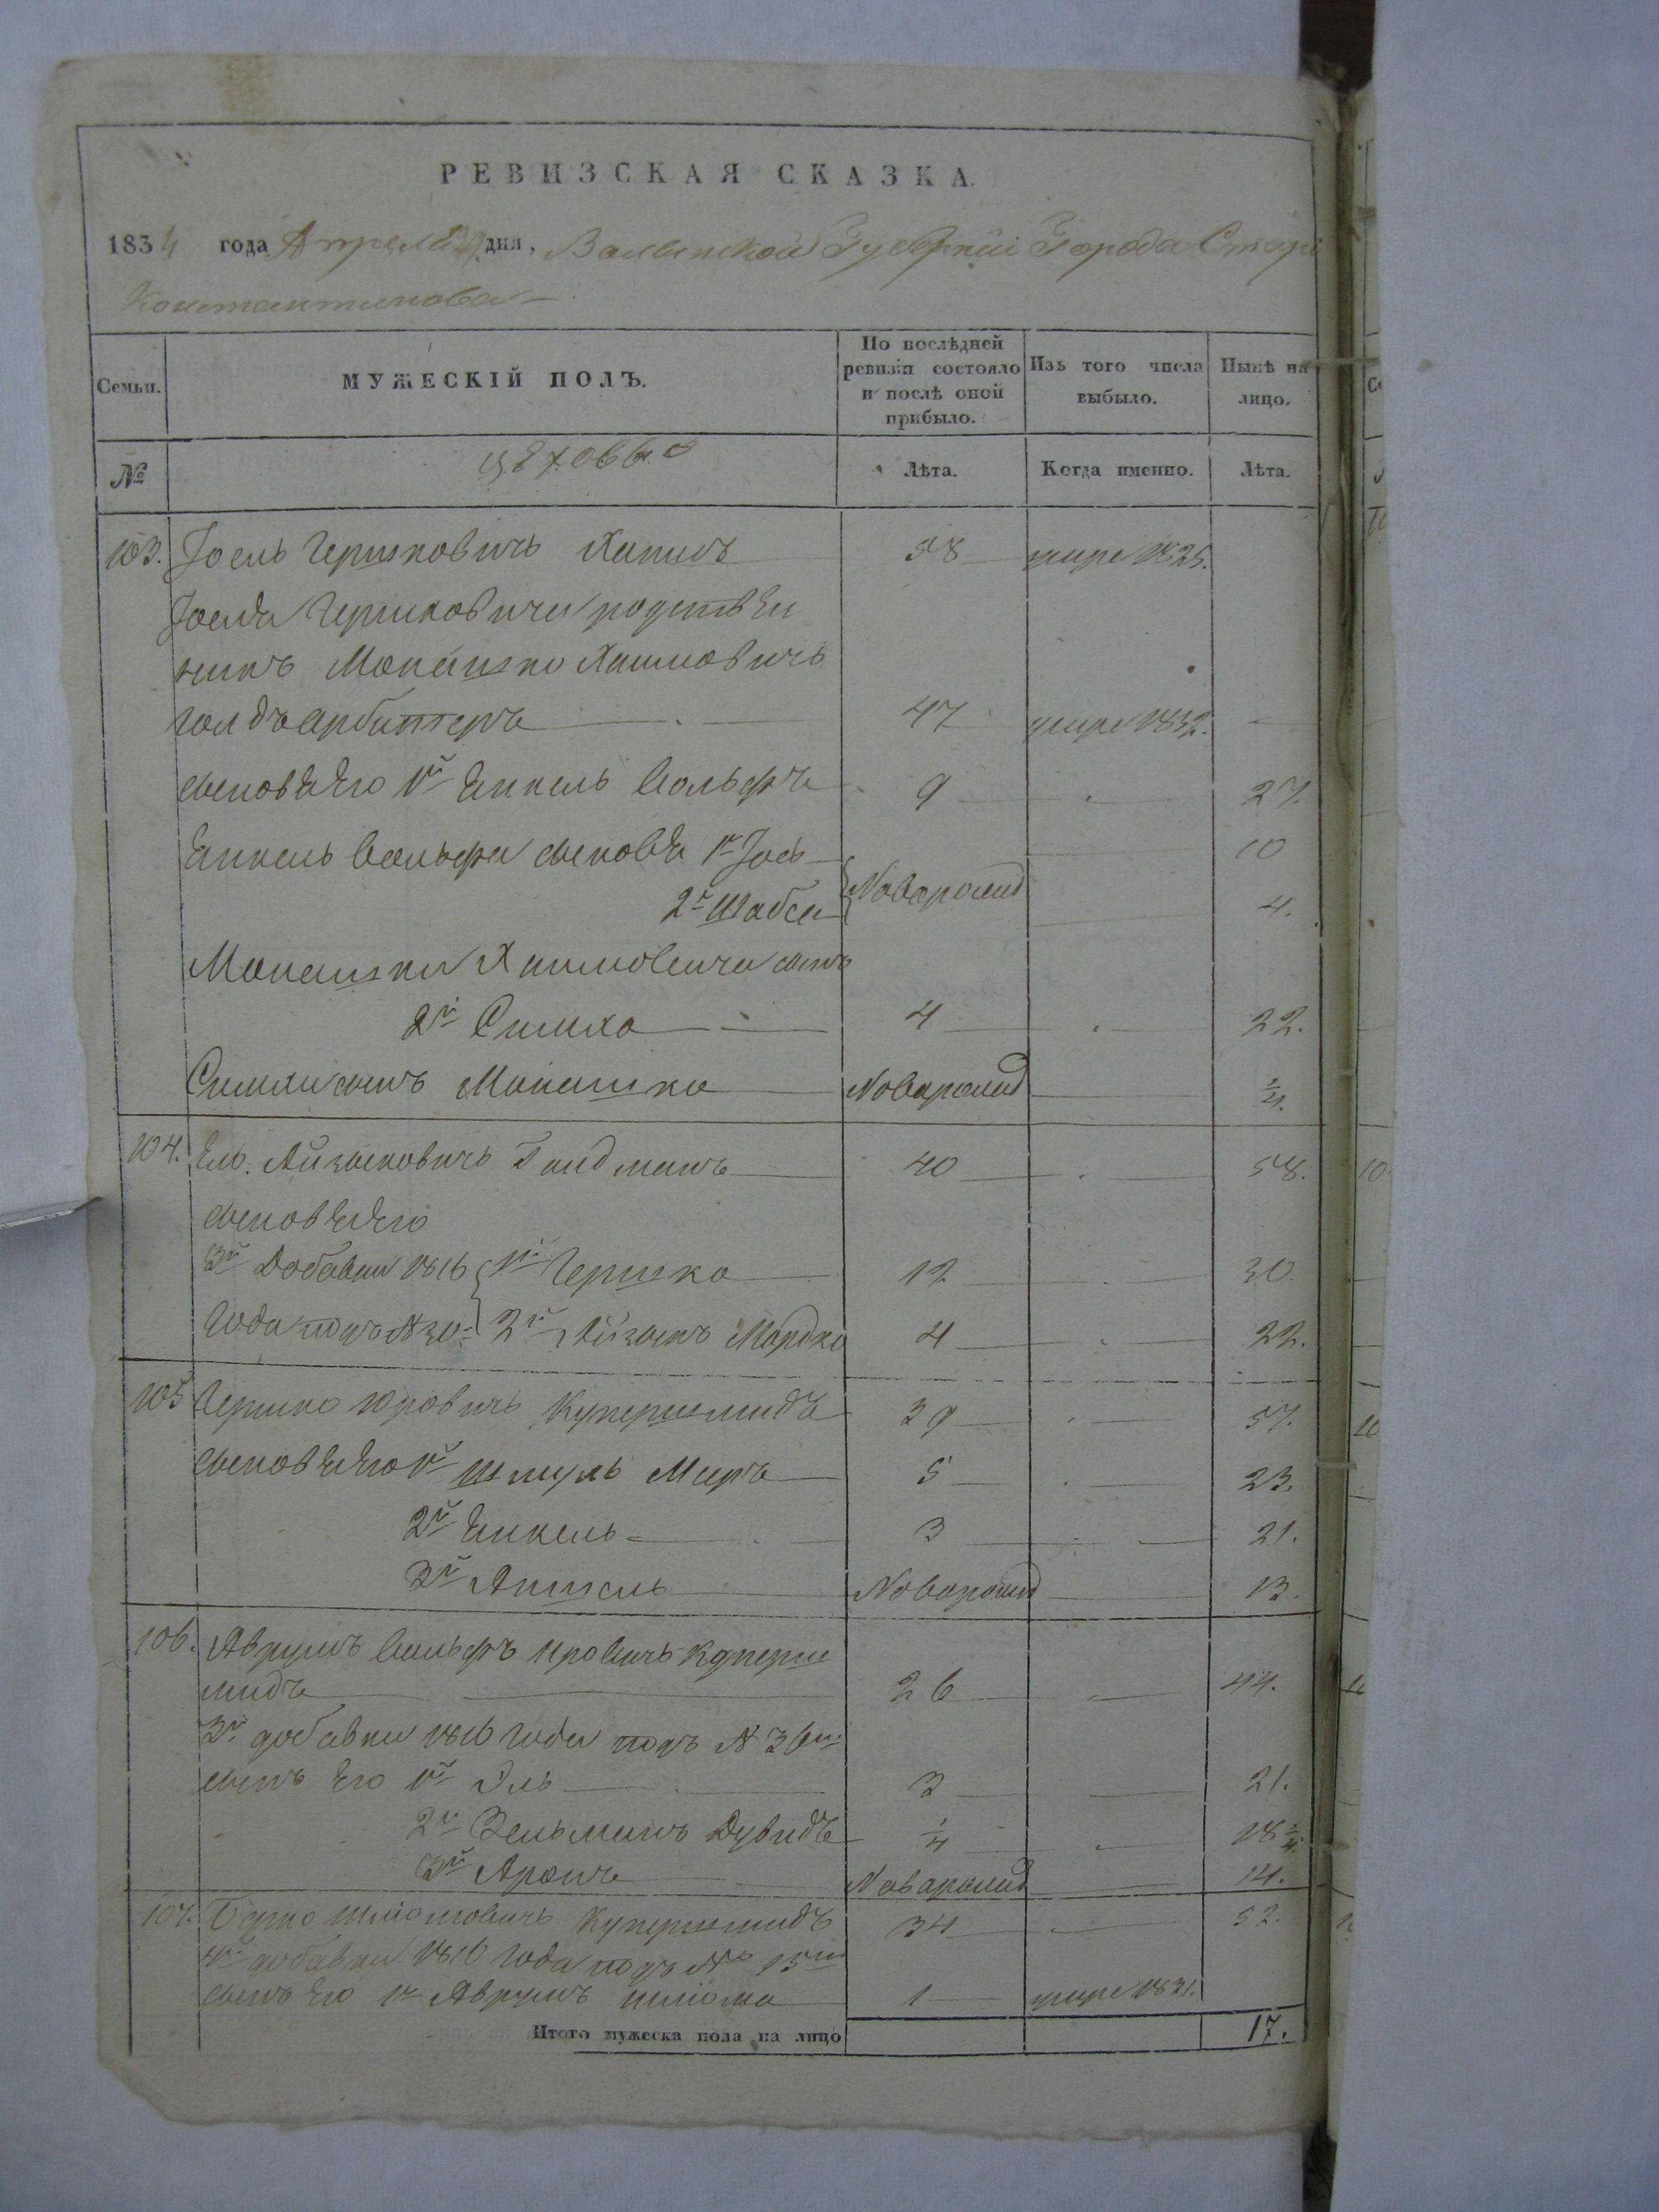 РЕВИЗСКАЯ СКАЗКА.
1834 года Апреля дня, Волынской Губерніи Города Старо
Константинова
Семьи. МУЖЕСКІЙ ПОЛЪ. По послѣдней ревизіи состояло и послѣ оной прибыло. Изъ того числа выбыло. Нынѣ на лицо.
№ Лѣта. Когда именно. Лѣта.
103. Іосль Гершковичь 58 умре 1825.
Іосля Гершковича родствѣн
никъ Монашко Хаимовичь
Голдъарбитеръ 47 умре 1832.
сыновъя Его 1й Янкель Вольфъ 9 27.
Янкель Вольфа сыновъя 1й Іось 10
2й Шабся Новорожд 4.
Монашки Хаимовича сынъ
2й Симха 4 22.
Симхи сынъ Монашко Новорожд 1/4.
104. Ель Айзыковичь Гандманъ 40 58.
сыновъя Его
Зй Добавки 1816 1й Гершко 12 30.
Года подъ № 30 2й Айзыкъ Мордко 4 22.
105 Гершко Юровичь Купершмидъ 39 57.
сыновъя Его 1й Шмуль Меръ 5 23.
2й Янкель 3 21.
3й Аншель Новорожд 13.
106. Аврумъ Вольфъ Юровичь Куперш
мидъ 26 44.
3й добавки 1816 Года подъ № 36м
сынъ Его 1й Эль 3 21.
2й Зельманъ Дувидъ 1/4 18 1/4.
3й Аронъ Новорожд 14.
107. Берко Шліомовичь Купершмидъ 34 52.
4й добавки 1816 Года подъ № 15м
сынъ Его 1й Аврумъ Шліома 1 умре 1831.
Итого мужеска пола на лицо 17.